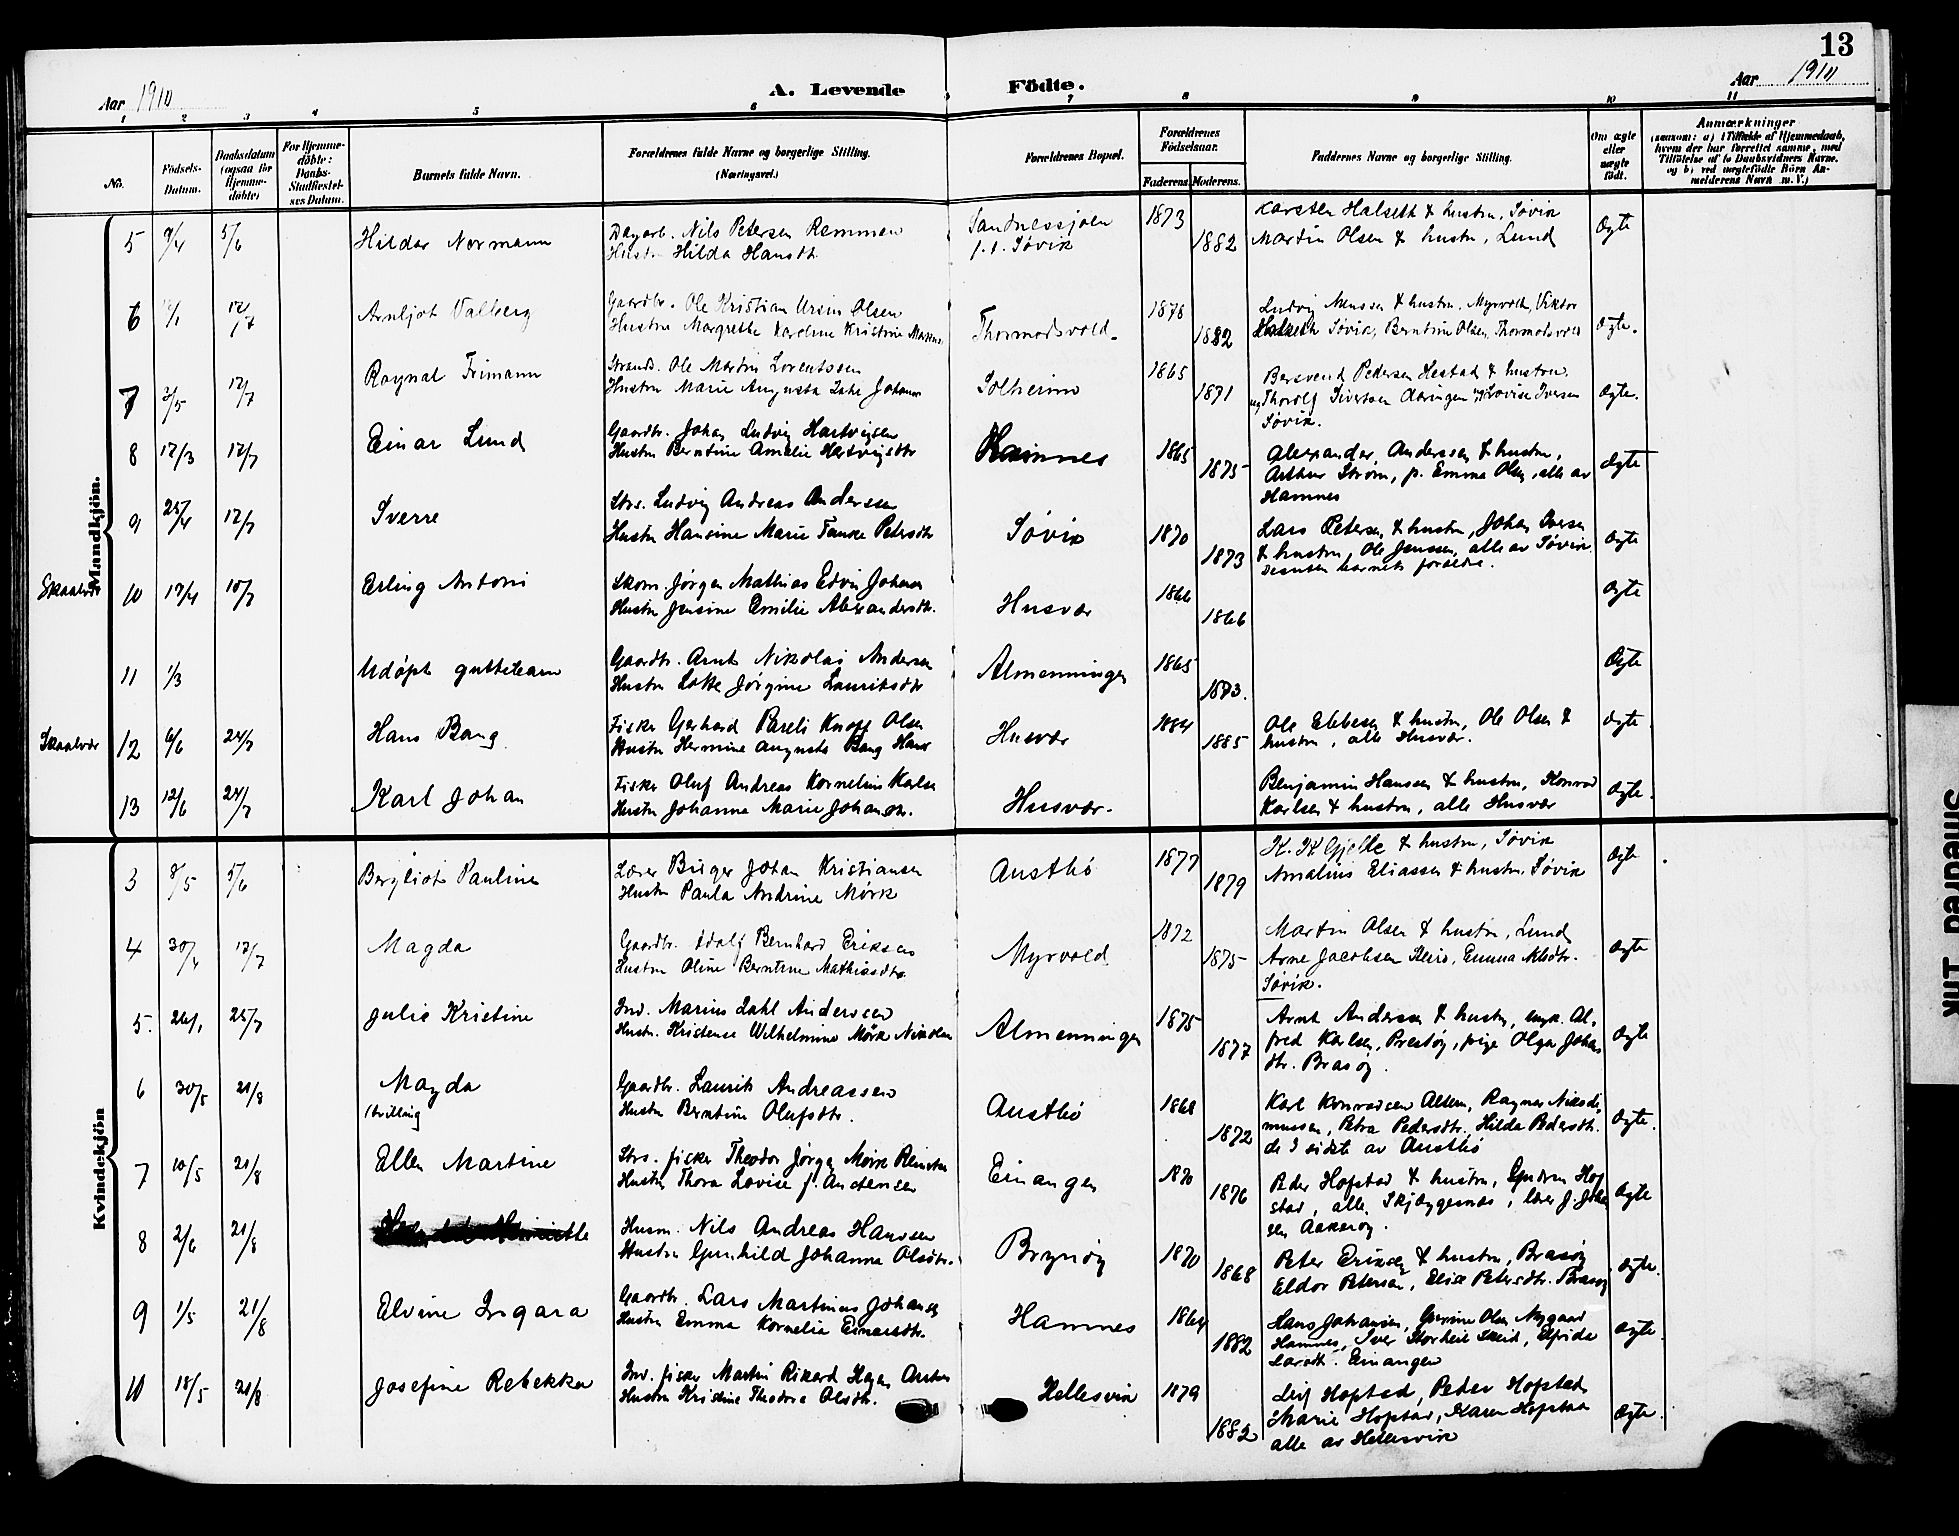 13
Aar 1910
A. Levende Födte.
Aar 1910
1 2 3 4 5 6 7 8 9 10 11
No.
Födsels-
Datum.
Daabsdatum
(ogsaa for
Hjemme-
döbte)
For Hjemme-
döbte:
Daabs-
Stadfæstel-
ses Datum.
Barnets fulde Navn.
Forældrenes fulde Navne og borgerlige Stilling.
(Næringsvei.)
Forældrenes Bopæl.
Forældrenes
Födselsaar.
Faderens. Moderens.
Faddernes Navne og borgerlige Stilling.
Om ægte
eller
uægte
födt.
Anmærkninger
(saasom: a) i Tilfælde af Hjemmedaab,
hvem der har forrettet samme, med
Tilföielse af to Daabsvidners Navne,
og b) ved uægtefödte Börn An-
melderens Navn m. V.)
Mandkjön.
5 9/4 5/6 Hildar Normann
Dagarb. Nils Petersen Remmen
Hustru Hilda Hansdtr.
Sandnessjøen
f. t. Søvik
1873
1882
Karsten Halseth & hustru, Søvik
Martin Olsen & hustru, Lund
Ægte
6 17/7 Arnljot Valberg
Gaardbr. Ole Kristian Ursin Olsen
Hustru Margrethe Karoline Kristine
Thormodsvold.
1876
1882
Ludvig & hustru, Myrvold, Viktor
Halseth Søvik, Berntine Olsen, Thormodsvold
Ægte.
7 2/5 17/7 Ragnal Frimann
Strands. Ole Martin Lorentssen
Hustru Marie Augusta
Solheim
1865
1871
Bersvend Pedersen Hestad & hustru
og Thorolf Sivertsen Lovise Iversen
Søvik.
Ægte.
8 17/3 17/7 Einar Lund
Gaardbr. Johan Ludvig Hartvigsen
Hustru Berntine Amalie Hartvigsdtr
Hamnes
1865
1875
Alexander Anderssen & hustru,
Arthur Strøm, p. Emma Olsen, alle av
Hamnes
Ægte
9 25/4 17/7 Sverre
Strs. Ludvig Andreas Anderssen
Hustru Hansine Marie Petersdtr
Søvik
1870
1873
Lars Petersen & hustru, Johan Iversen
& hustru, Ole Jenssen, alle av Søvik
desuten barnets foreldre.
Ægte
Skaalvær
10 17/4 10/7 Erling Antoni
Skom. Jørgen Mathias Edvin Johansen
Hustru Jensine Emilie Alexandersdtr.
Husvær
1866
1866
Ægte
11 1/3 Udøpt guttebarn
Gaardbr. Arnt Nikolai Andersen
Hustru Lotte Jørgine Lauritsdtr
Almenningen
1865
1873.
Ægte
Skaalvær
12 6/6 24/7 Hans Bang
Fisker Gerhard Pareli Knoff Olsen
Hustru Hermine Augusta Bang Hansen
Husvær
1884
1885
Ole Ebbesen & hustru, Ole Olsen &
hustru, alle Husvær.
Ægte.
13 12/6 24/7 Karl Johan
Fisker Oluf Andreas Kornelius Karlsen
Hustru Johanna Marie Johansdtr.
Husvær.
Benjamin Hanssen & hustru, Konrad
Karlsen & hustru, alle Husvær
Ægte.
Kvindekjön
3 8/5 5/6 Bergliot Pauline
Lærer Birger Johan Kristiansen
Hustru Paula Andrine Mørk
Austbø
1877
1879
K. K. Gjelle & hustru, Søvik
Amalius Eliassen & hustru, Søvik
Ægte
4 30/4 17/7 Magda
Gaardbr. Adolf Bernhard Eriksen
Hustru Oline Berntine Mathiasdtr.
Myrvold
1872
1875
Martin Olsen & hustru, Lund
Arne Jacobsen Skeid, Emma
Søvik.
Ægte
5. 24/1 25/7 Julie Kristine
Ind. Marius Dahl Anderssen
Hustr. Kristense Wilhelmine Mørk Nikolaisen
Almenningen
1875
1877
Arnt Andersen & hustru, ungk. Al-
fred Karlsen, Prestøy, pige Olga Johan
dtr. Brasøy.
Ægte
6 30/5 21/8 Magda
(tvilling
Gaardbr. Laurits Andreassen
Hustru Berntine Olufsdtr.
Austbø
1868
1872
Karl Konradsen Alten, Ragnar
Petra Pedersdtr. Hilda Pedersdtr.
de 3 sidste av Austbø
Ægte.
7 10/5 21/8 Ellen Martine
Strs. fisker Theodor Jørgen Mørk
Hustru Thora Lovise f. Andersen
Einangen
1870
1876
Peder Hopstad & hustru, Gudrun Hop
stad, alle Skjæggernes, lærer J. Johan
sen Aakerøy.
Ægte
8 2/6 21/8
Husm. Nils Andreas Hanssen
Hustru Gunhild Johanna Olsdtr.
Brynøy
1870
1868
Peter Eriksen & hustru, Brasøy
Eldor Petersen, Elise Petersdtr. Brasøy
Ægte.
9 1/5 21/8 Elvine Ingara
Gaardbr. Lars Martinus Johansen
Hustru Emma Kornelia Einarsdtr.
Hamnes
1864
1882
Hans Johansen, Olsen Nygaard
Hamnes, Iver Storheil Skeid, Elfrida
Larsdtr. Einangen
Ægte
10 18/5 21/8 Josefine Rebekka
Ind. fisker Martin Rikard Hagen
Hustru Kristine Theodora Olsdtr.
Hellesvik
1879
1882
Leif Hopstad, Peder Hopstad
Marie Hopstad, Karen Hopstad
alle av Hellesvik
Ægte.